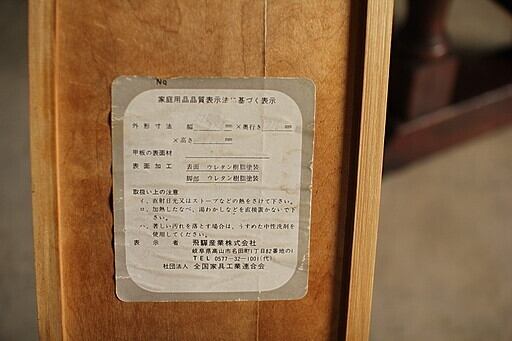 No
家庭用品品質表示法に基づく表示
外形寸法 幅 mm ×奥行き mm
×高さ mm
甲板の表面材
表面加工 表面 ウレタン樹脂塗装
脚部 ウレタン樹脂塗装
取扱い上の注意
イ、直射日光又はストーブなどの熱をさけて下さい。
ロ、加熱したなべ、湯わかしなどを直接置かないで下さい。
ハ、著しい汚れを落とす場合は、うすめた中性洗剤を使用してください。
表示者 飛驒産業株式会社
岐阜県高山市名田町1丁目82番地の1
TEL 0577-32-1001(代)
社団法人 全国家具工業連合会